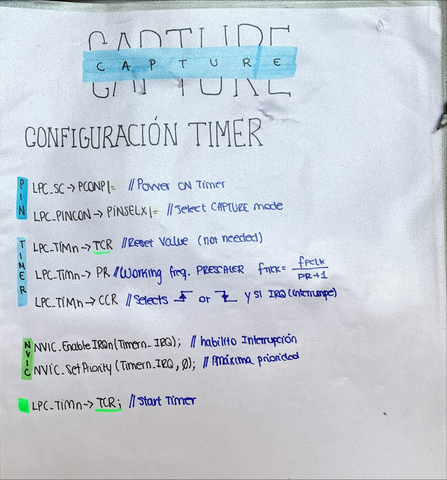 CAPTURE
CAPTURE
CONFIGURACIÓN TIMER
PIN
LPC_SC->PCONP|= //Power ON Timer
LPC_PINCON->PINSELX|= //Select CAPTURE mode
TIMER
LPC_TIMn->TCR //Reset Value (not needed)
LPC_TIMn->PR //Working freq. PRESCALER fTICK= fPCLK/PR+1
LPC_TIMn->CCR //Selects or y SI IRQ (interrumpe)
NVIC
NVIC_EnableIRQn(Timern_IRQ); //habilito Interrupción
NVIC_SetPriority(Timern_IRQ,0); //Máxima prioridad
LPC_TIMn->TCR; //Start Timer